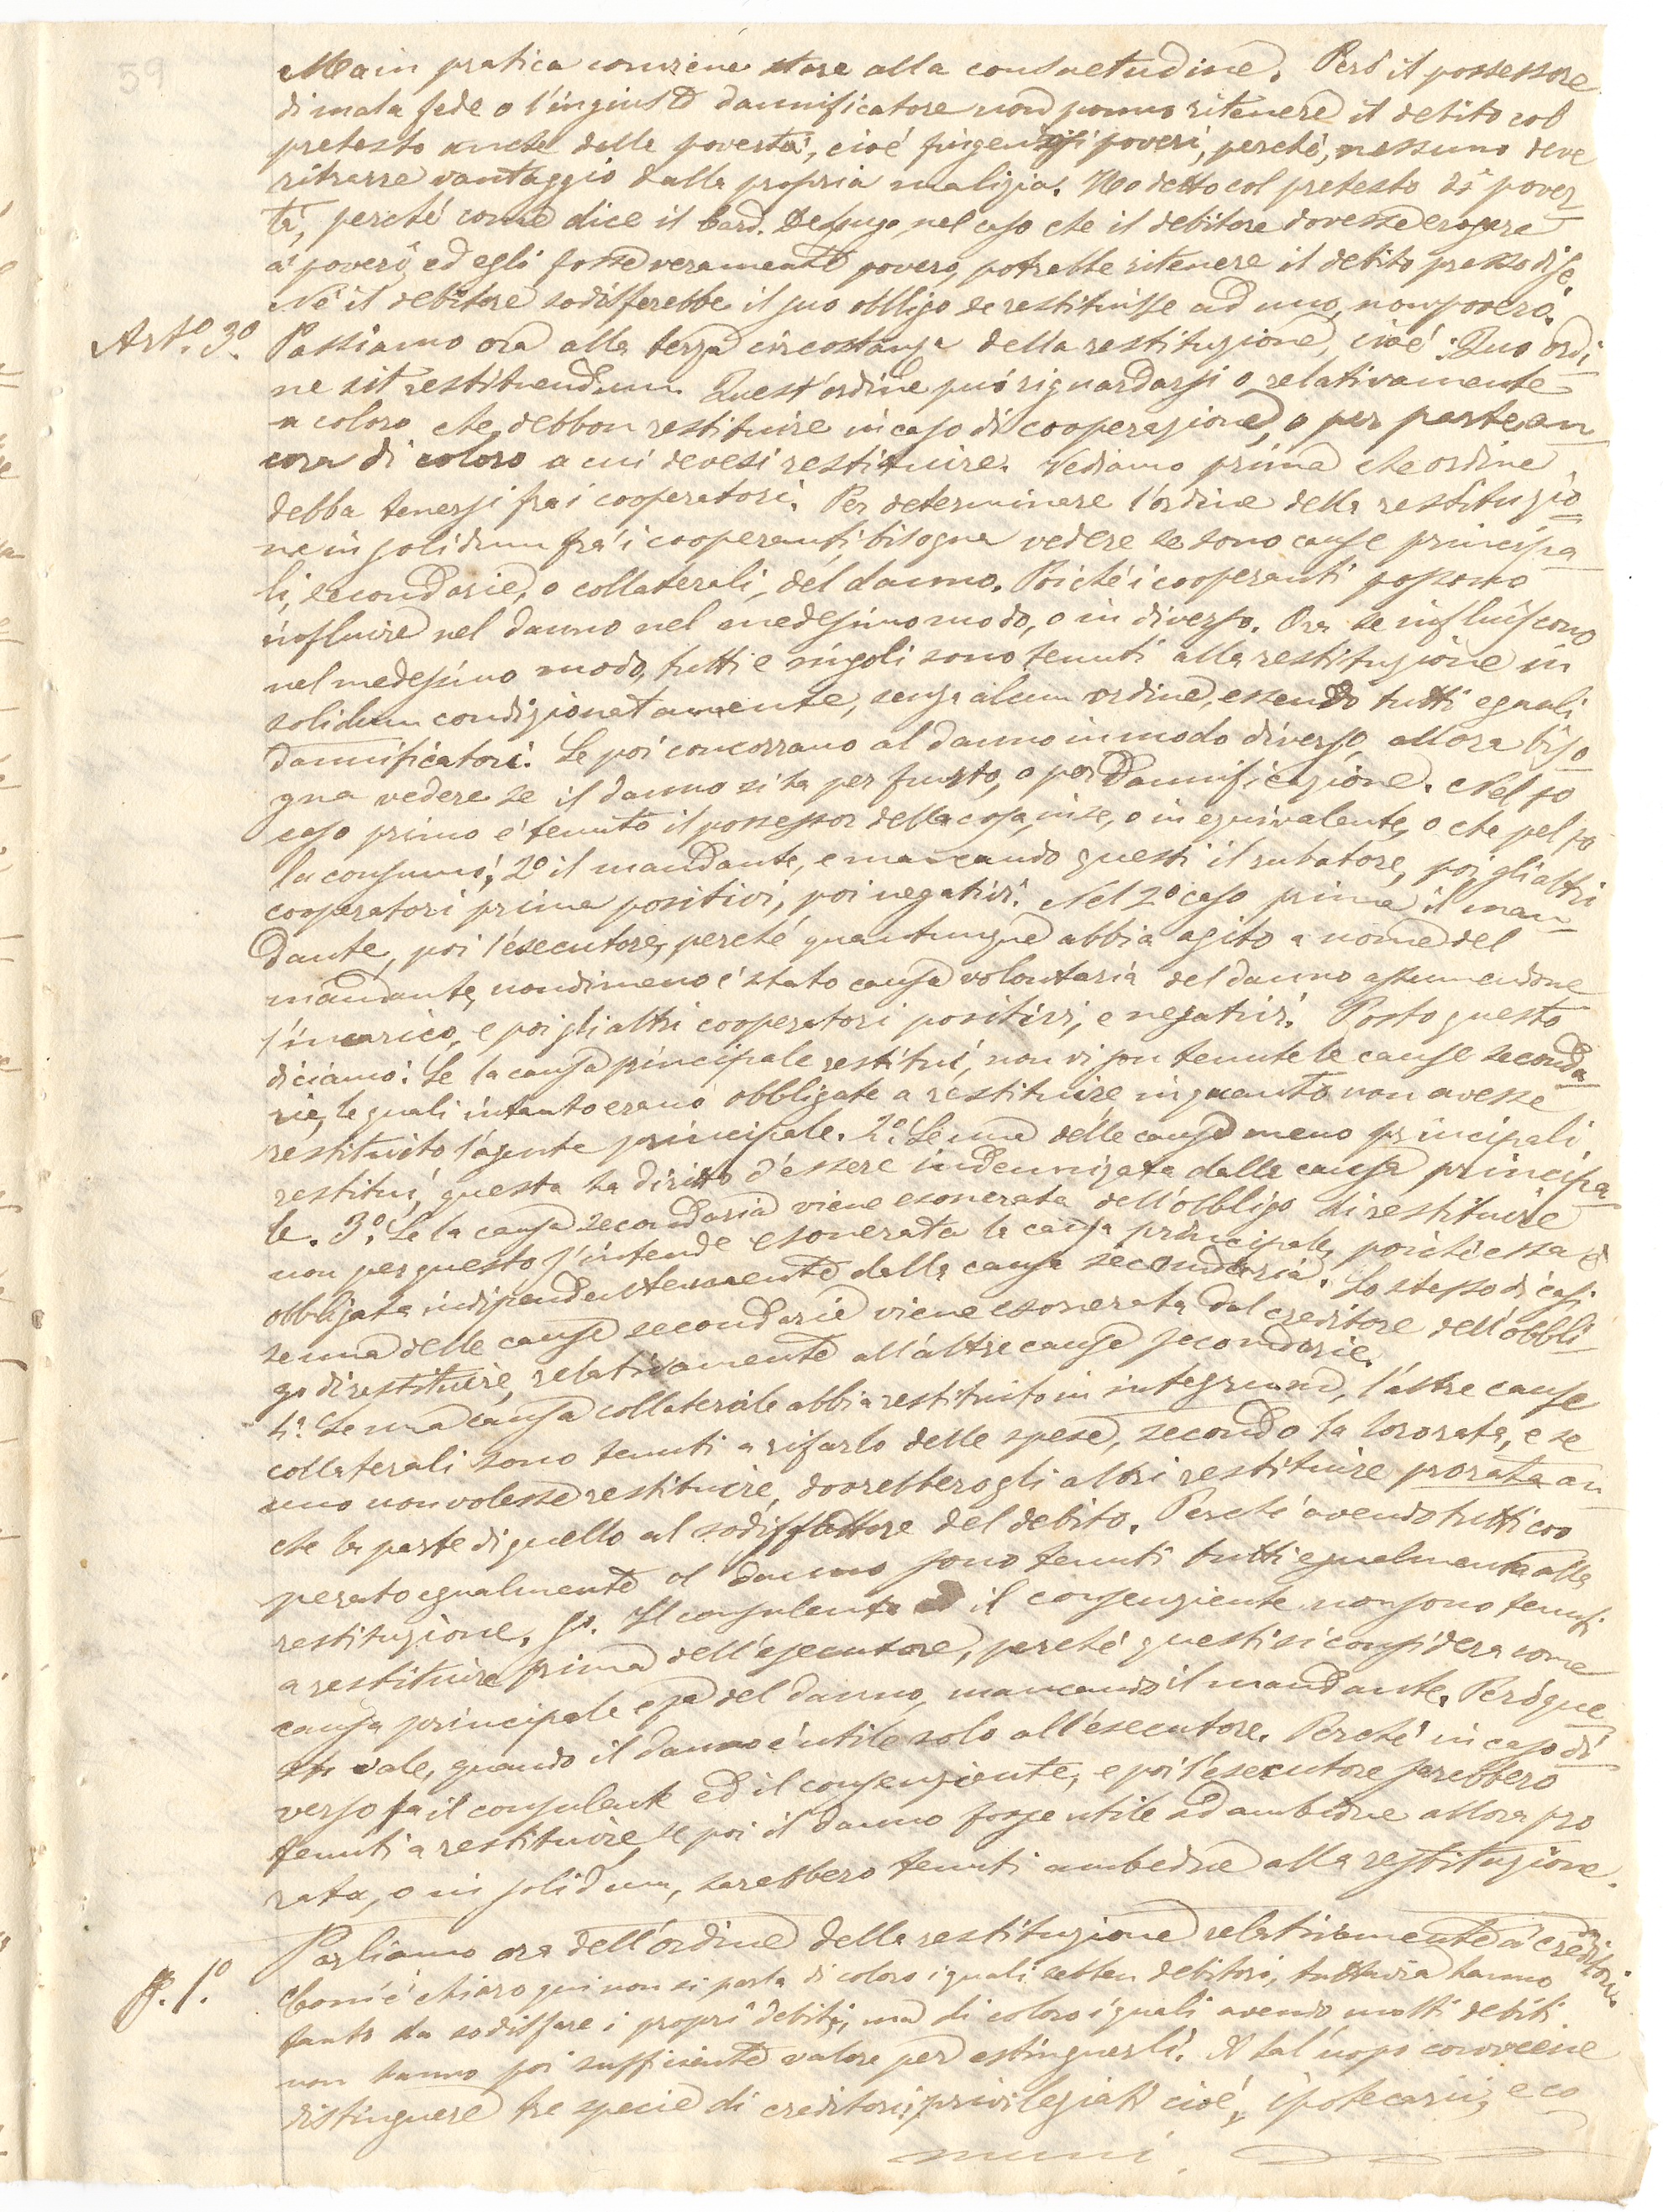 59
Ma in pratica conviene stare alla consuetudine. Però il possessore
di mala fede o l'ingiusto dannificatore non ponno ritenere il debito col
pretesto anche della povertà, cioè fingendosi poveri, perchè, nessuno deve
ritrarre vantaggio dalla propria malizia. Ho detto col pretesto di pover
tà, perchè come dice il Card. Delugo, nel caso che il debitore dovesse erogare
a' poveri, ed egli fosse veramente povero, potrebbe ritenere il debito presso di se.
Nè il debitore sodisferebbe il suo obbligo se restituisse ad uno, non povero.
Art.º 3º. Passiamo ora alla terza circostanza della restituzione, cioè: Quo ordi
ne sit restituendum. Quest'ordine può riguardarsi o relativamente
a coloro che debbon restituire in caso di cooperazione, o per parte an
cora di coloro a cui devesi restituire. Vediamo prima che ordine
debba tenersi fra i cooperatori. Per determinare l'ordine della restituzio
ne in solidum fra i cooperanti, bisogna vedere se sono cause principa
li, secondarie, o collaterali, del danno. Poichè i cooperanti possono
influire nel danno nel medesimo modo, o in diverso. Ora se influiscono
nel medesimo modo, tutti e singoli sono tenuti alla restituzione in
solidum condizionatamente, senza alcun ordine, essendo tutti eguali
dannificatori. Se poi concorrano al danno in modo diverso, allora biso
gna vedere se il danno si ha per furto, o per dannificazione. Nel po
caso primo è tenuto il possessor della cosa, in se, o in equivalente, o che pel po
la consumò; 2º il mandante, e mancando questi il rubatore, poi gli altri
cooperatori prima positivi, poi negativi. Nel 2º caso prima il man
dante, poi l'esecutore, perchè quantunque abbia agito a nome del
mandante, nondimeno è stato causa volontaria del danno assumendone
l'incarico, e poi gli altri cooperatori positivi, e negativi. Posto questo
diciamo: Se la causa principale restituì, non vi son tenute le cause seconda
rie, le quali intanto erano obbligate a restituire in quanto non avesse
restituito l'agente principale. 2º. Se una delle cause meno principali
restituì, questa ha diritto d'essere indennizata dalla causa principa
le. 3º. Se la causa secondaria viene esonerata dell'obbligo di restituire
non per questo s'intende esonerata la causa principale, poichè essa è
obbligata indipendentemente dalla causa secondaria. Lo stesso dicasi
se una delle cause secondarie viene esonerata dal creditore dell'obbli
go di restituire, relativamente all'altre cause secondarie.
4º. Se una causa collaterale abbia restituito in integrum, l'altre cause
collaterali sono tenuti a rifarlo delle spese, secondo la loro rata, e se
uno non volesse restituire, dovrebbero gli altri restituire pro rata an
che la parte di quello al sodisfattore del debito. Perchè avendo tutti coo
perato egualmente al danno sono tenuti tutti egualmente alla
restituzione. 5º. Il consulente ed il consenziente non sono tenuti
a restituire prima dell'esecutore, perchè questi si considera come
causa principale e po del danno, mancando il mandante. Però que
sto vale, quando il danno è utile solo all'esecutore. Perchè in caso di
verso pa il consulente ed il consenziente, e poi l'esecutore sarebbero
tenuti a restituire, se poi il danno fosse utile ad ambidue allora pro
rata, o in solidum, sarebbero tenuti ambedue alla restituzione.
§. 1º. Parliamo ora dell'ordine della restituzione relativamente a' creditori.
Com'è chiaro qui non si parla di coloro i quali sebben debitori, tuttavia hanno
tanto da sodisfare i propri debiti, ma di coloro i quali avendo molti debiti
non hanno poi sufficiente valore per estinguerli. A tal'uopo conviene
distinguere tre specie di creditori, privilegiati cioè, ipotecarii, e co
muni.